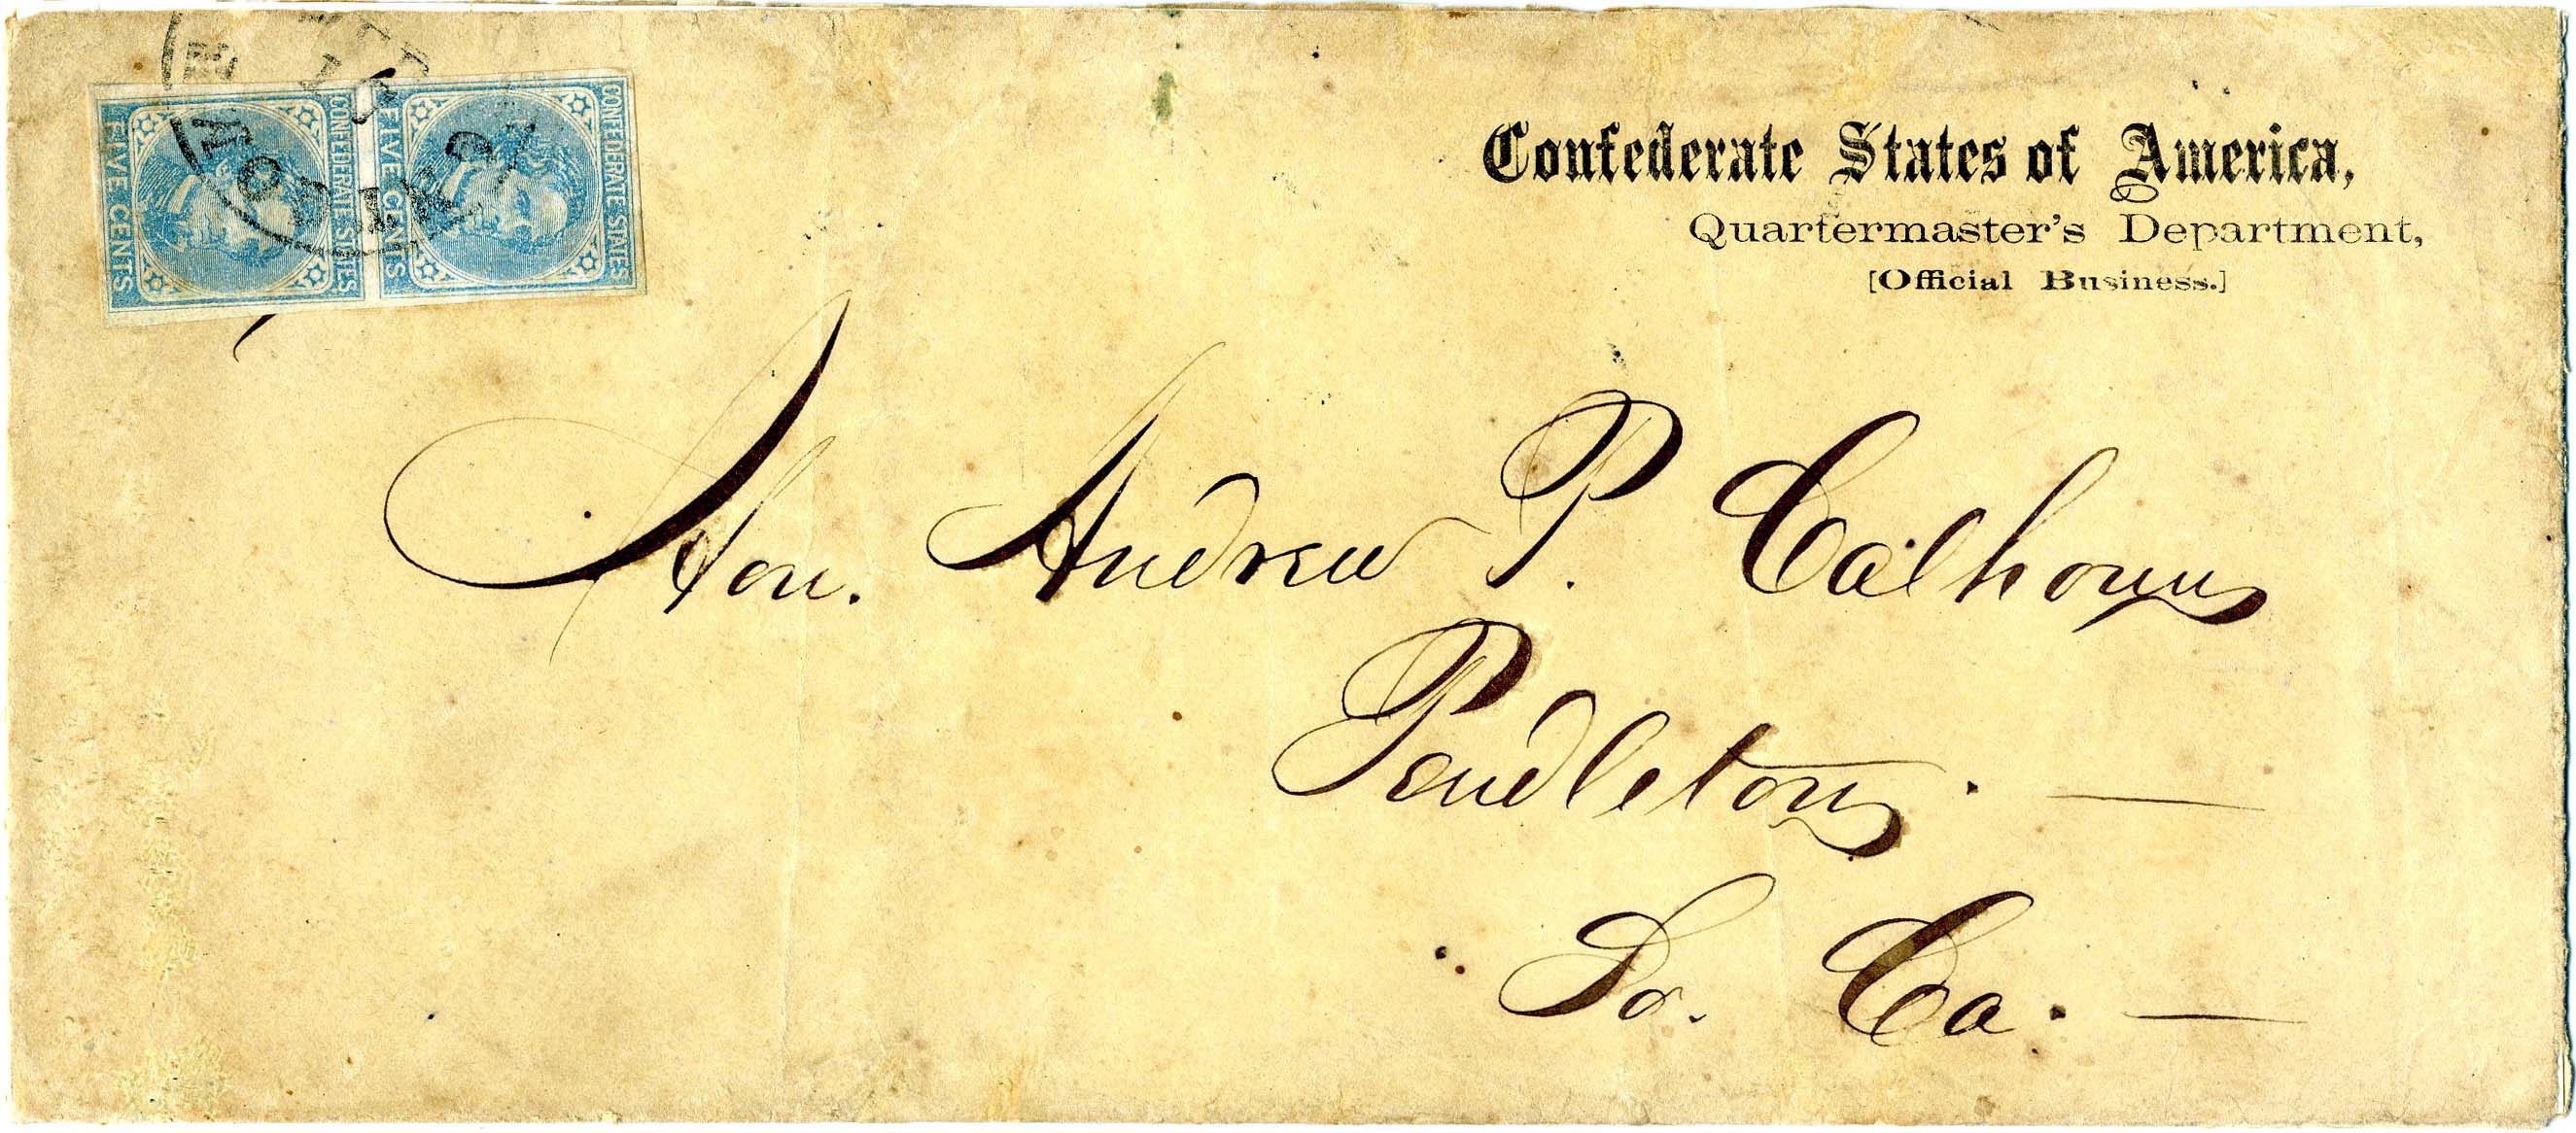 CONFEDERATE STATES
FIVE CENTS
CONFEDERATE STATES
FIVE CENTS
Confederate States of America,
Quartermaster's Department,
[Official Business.]
Hon. Andrew P. Calhoun
Pendleton. —
So. Ca. —